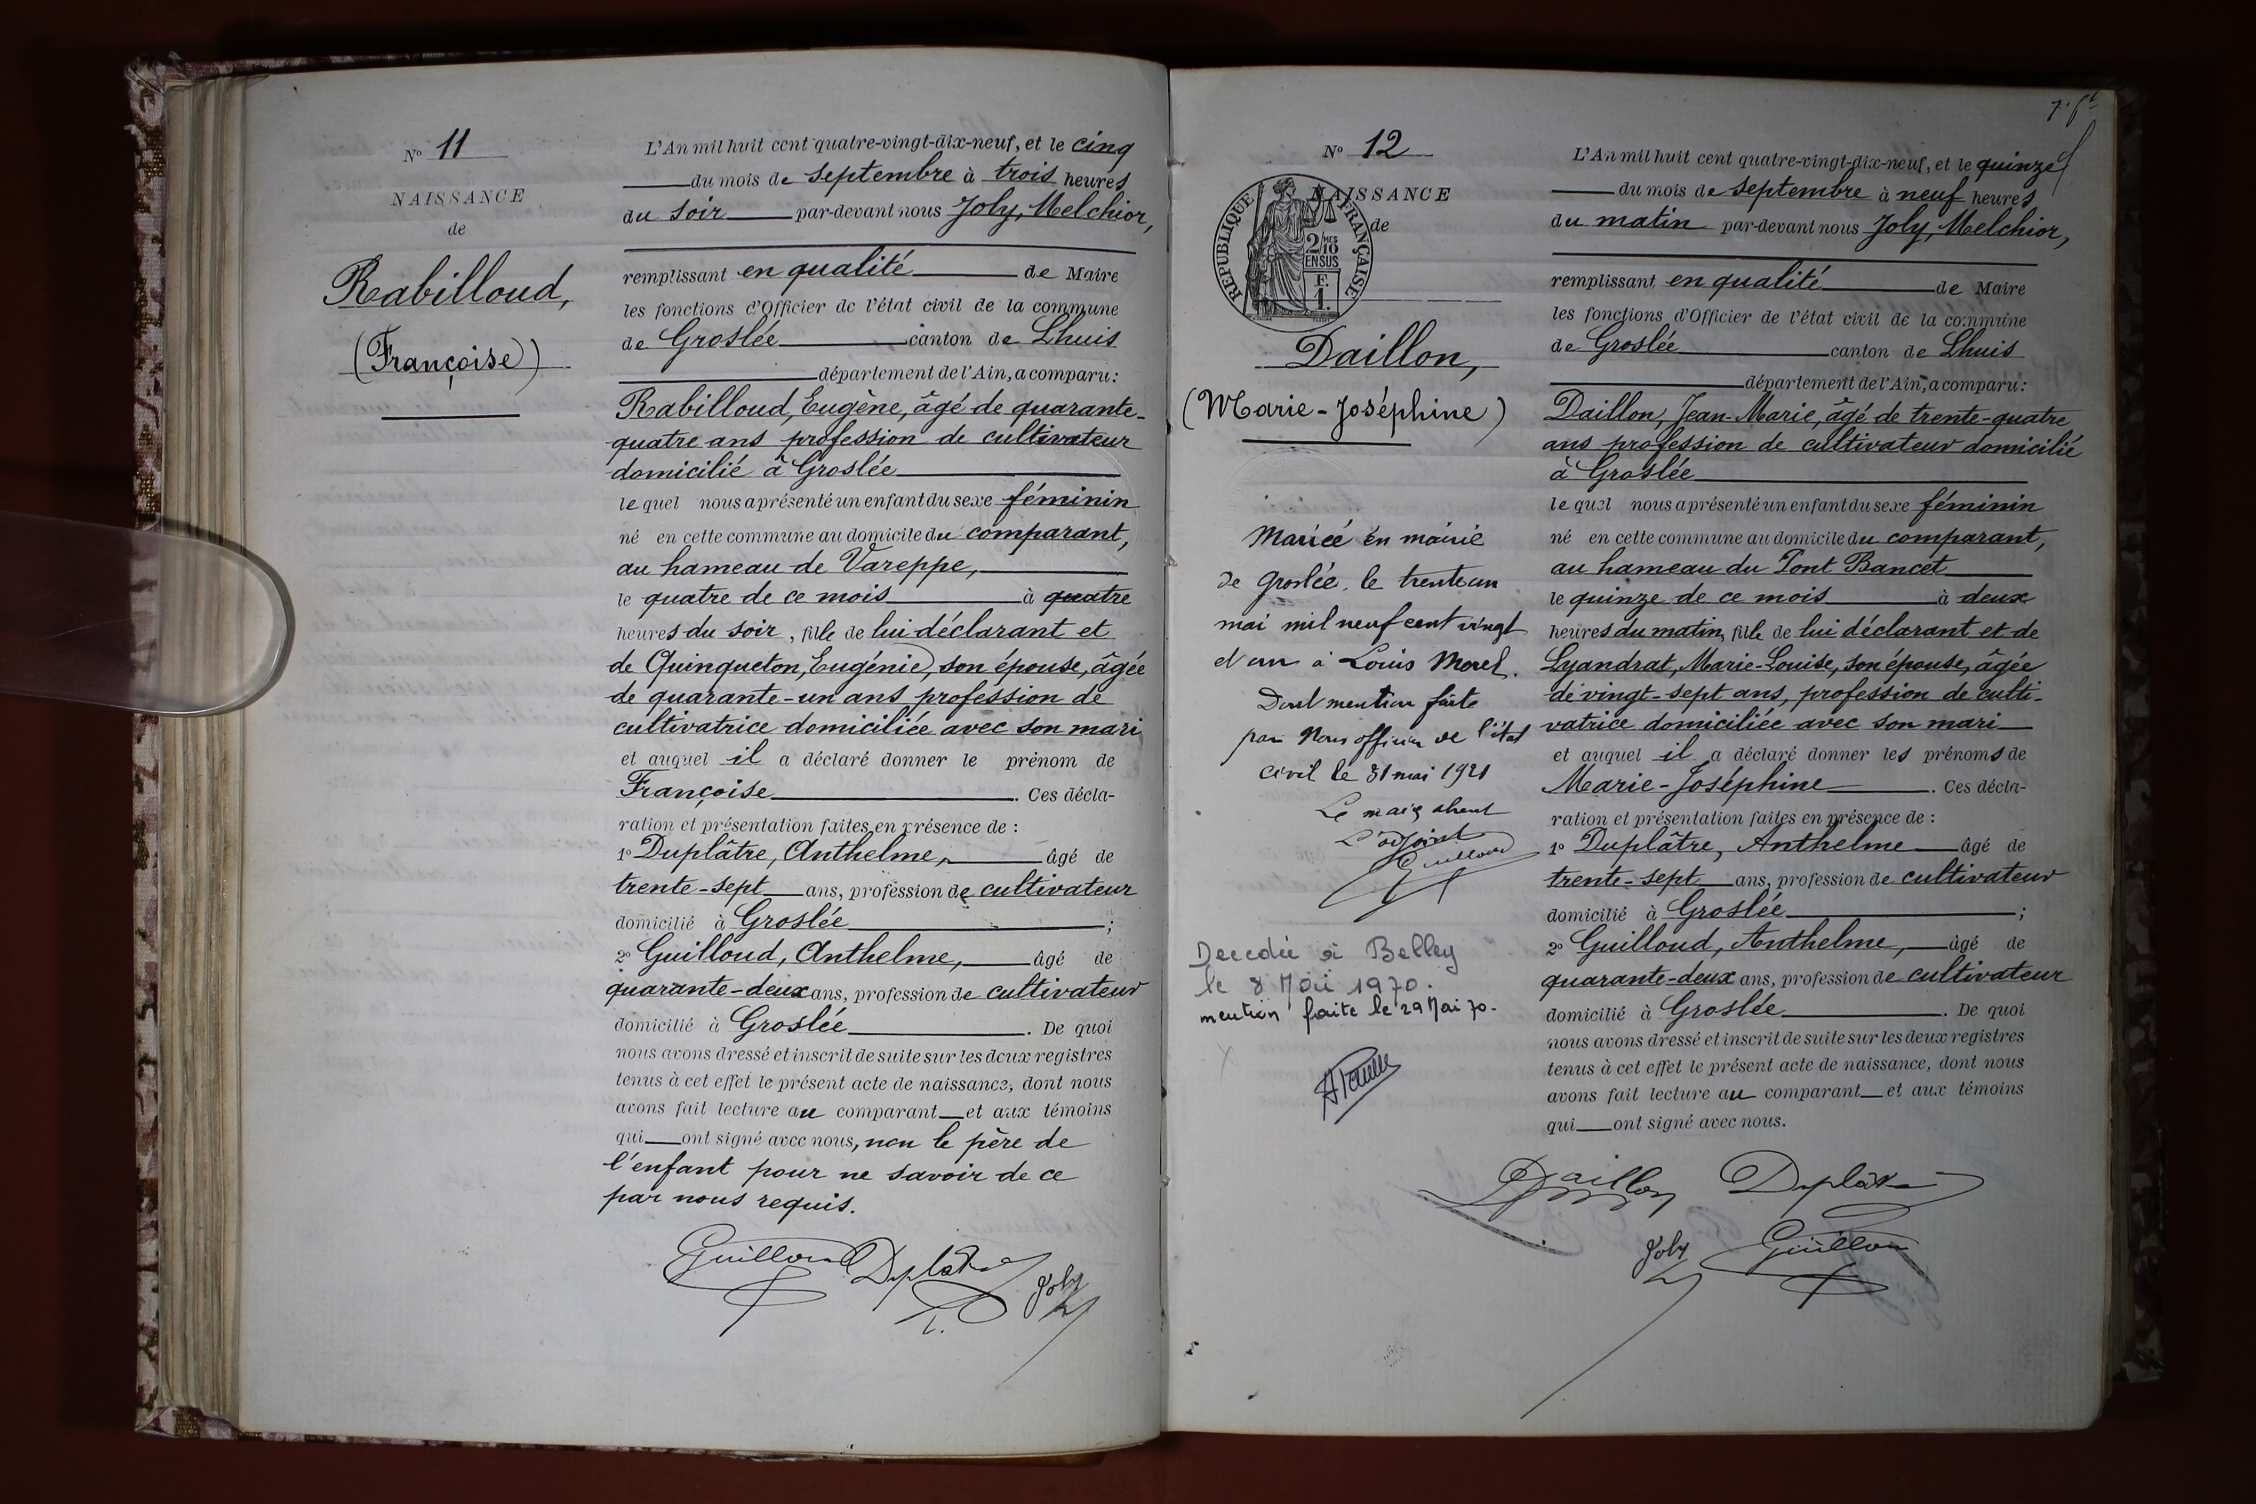 N° 11
NAISSANCE
de
Rabilloud,
(Françoise)
L'An mil huit cent quatre-vingt-dix-neuf, et le cinq
du mois de septembre à trois heures
du soir par-devant nous Joly, Melchior,
remplissant en qualité de Maire
les fonctions d'Officier de l'état civil de la commune
de Groslée canton de Lhuis
département de l'Ain, a comparu:
Rabilloud, Eugène, âgé de quarante-
quatre ans profession de cultivateur
domicilié à Groslée
lequel nous a présenté un enfant du sexe féminin
né en cette commune au domicile du comparant,
au hameau de Vareppe,
le quatre de ce mois à quatre
heures du soir, fille de lui déclarant et
de Quinqueton, Eugénie, son épouse, âgée
de quarante-un ans profession de
cultivatrice domiciliée avec son mari
et auquel il a déclaré donner le prénom de
Françoise. Ces décla-
ration et présentation faites en présence de :
1° Duplâtre, Anthelme, âgé de
trente-sept ans, profession de cultivateur
domicilié à Groslée ;
2° Guilloud, Anthelme, âgé de
quarante-deux ans, profession de cultivateur
domicilié à Groslée. De quoi
nous avons dressé et inscrit de suite sur les deux registres
tenus à cet effet le présent acte de naissance, dont nous
avons fait lecture au comparant et aux témoins
qui ont signé avec nous, non le père de
l'enfant pour ne savoir de ce
par nous requis.
Guilloud Duplâtre Joly
N° 12
NAISSANCE
de
REPUBLIQUE FRANÇAISE
2/10 MES
EN SUS
F.
1.
Daillon,
(Marie-Joséphine)
Mariée en mairie
de Groslée. le trente un
mai mil neuf cent vingt
et un à Louis Morel.
Dont mention faite
par Nous officier de l'état
civil le 31 mai 1921
Le maire absent
L'adjoint
Guilloud
Decedée à Belley
le 8 Mai 1970.
mention faite le 29 Mai 70.
L'An mil huit cent quatre-vingt-dix-neuf, et le quinze
du mois de septembre à neuf heures
du matin par-devant nous Joly, Melchior,
remplissant en qualité de Maire
les fonctions d'Officier de l'état civil de la commune
de Groslée canton de Lhuis
département de l'Ain, a comparu:
Daillon, Jean-Marie, âgé de trente-quatre
ans profession de cultivateur domicilié
à Groslée
lequel nous a présenté un enfant du sexe féminin
né en cette commune au domicile du comparant,
au hameau du Pont Bancet
le quinze de ce mois à deux
heures du matin, fille de lui déclarant et de
Lyandrat, Marie-Louise, son épouse, âgée
de vingt-sept ans, profession de culti-
vatrice domiciliée avec son mari
et auquel il a déclaré donner les prénoms de
Marie-Joséphine. Ces décla-
ration et présentation faites en présence de :
1° Duplâtre, Anthelme âgé de
trente-sept ans, profession de cultivateur
domicilié à Groslée ;
2° Guilloud, Anthelme, âgé de
quarante-deux ans, profession de cultivateur
domicilié à Groslée. De quoi
nous avons dressé et inscrit de suite sur les deux registres
tenus à cet effet le présent acte de naissance, dont nous
avons fait lecture au comparant et aux témoins
qui ont signé avec nous.
Daillon Duplâtre
Joly Guilloud